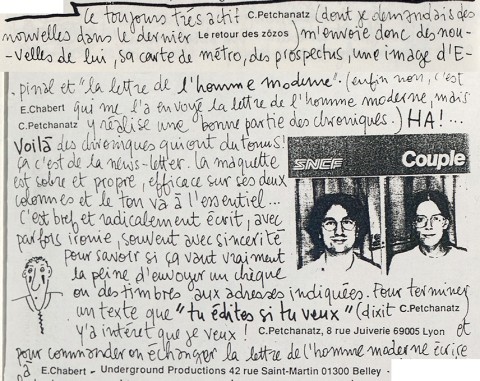 Le toujours très actif C.Petchanatz (dont je demandais des
nouvelles dans le dernier Le retour des zözos ) m'envoie donc des nou-
-velles de lui, sa carte de métro, des prospectus, une image d'E-
-pinal et "la lettre de l'homme moderne". (enfin non, c'est
E.Chabert qui me l'a envoyé la lettre de l'homme moderne, mais
C.Petchanatz y réalise une bonne partie des chroniques.) HA!...
Voilà des chroniques qui ont du tonus!
ça c'est de la news-letter. la maquette
est sobre et propre, efficace sur ses deux
colonnes et le ton va à l'essentiel...
C'est bref et radicalement écrit, avec
parfois ironie, souvent avec sincerité
pour savoir si ça vaut vraiment
la peine d'envoyer un chèque
ou des timbres aux adresses indiquées. Pour terminer
un texte que "tu édites si tu veux" (dixit C.Petchanatz
y'a intérêt que je veux ! C.Petchanatz, 8 rue Juiverie 69005 Lyon et
pour commander ou échanger la lettre de l'homme moderne écrire
à E.Chabert - Underground Productions 42 rue Saint-Martin 01300 Belley -
SNCF Couple